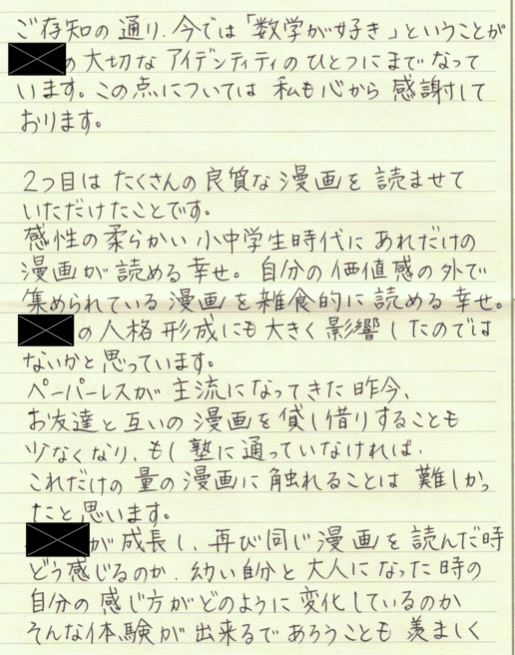 ご存知の通り、今では「数学が好き」ということが
の大切なアイデンティティのひとつにまでなって
います。この点については私も心から感謝して
おります。
2つ目はたくさんの良質な漫画を読ませて
いただけたことです。
感性の柔らかい小中学生時代にあれだけの
漫画が読める幸せ。自分の価値感の外で
集められている漫画を雑食的に読める幸せ。
の人格形成にも大きく影響したのでは
ないかと思っています。
ペーパーレスが主流になってきた昨今、
お友達と互いの漫画を貸し借りすることも
少なくなり、もし塾に通っていなければ、
これだけの量の漫画に触れることは難しかっ
たと思います。
が成長し、再び同じ漫画を読んだ時
どう感じるのか、幼い自分と大人になった時の
自分の感じ方がどのように変化しているのか
そんな体験が出来るであろうことも羨ましく